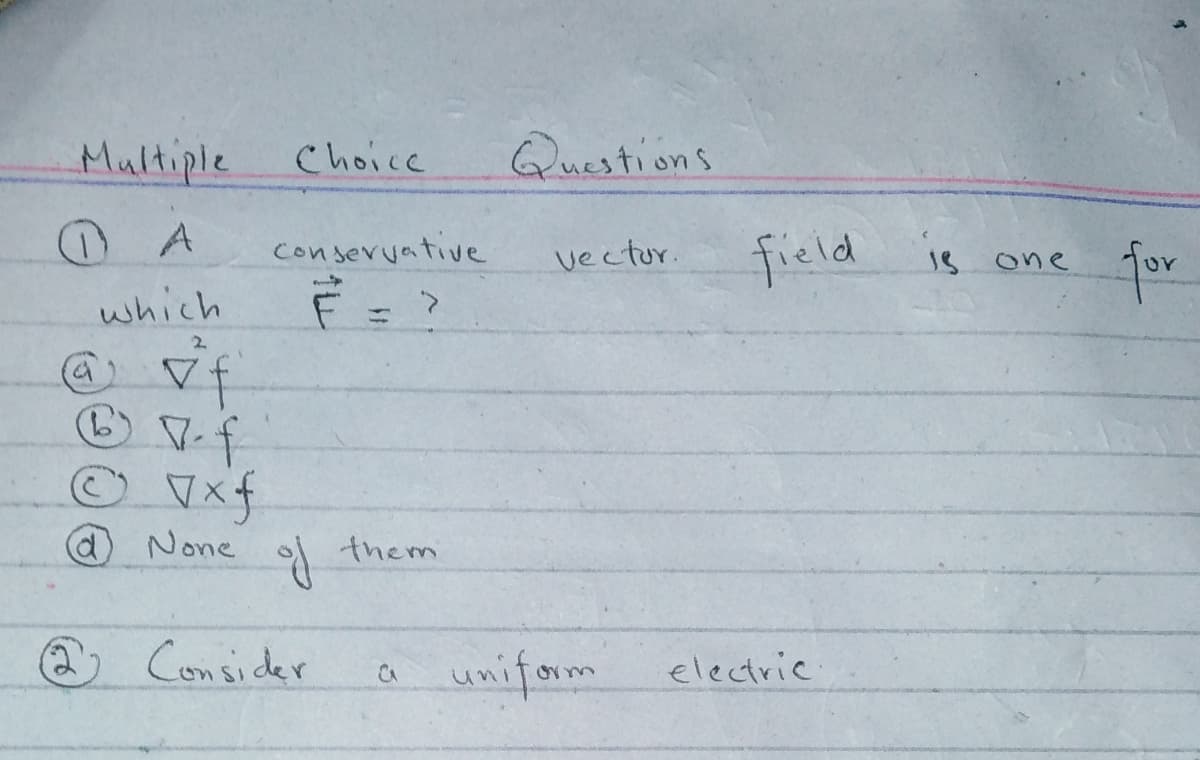 Multiple Choice Questions
① A conservative vector. field is one for
which F⃗ = ?
ⓐ ∇²f
ⓑ ∇·f
ⓒ ∇×f
ⓓ None of them
② Consider a uniform electric